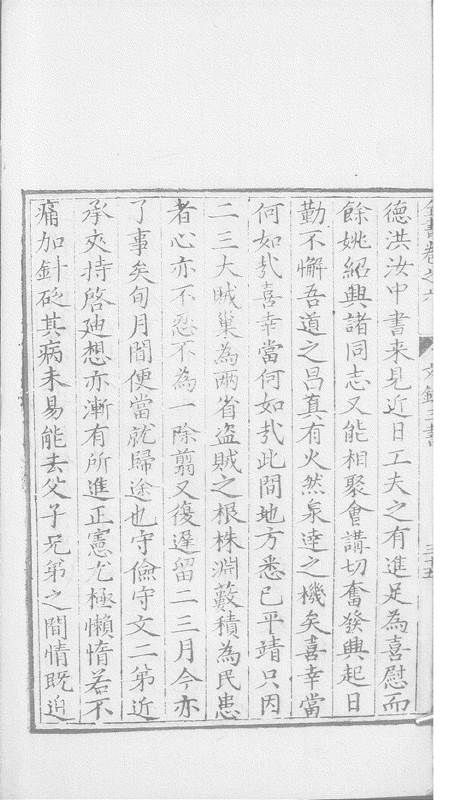 全書卷之六 文錄三書 三十五
德洪汝中書来見近日工夫之有進足為喜慰而
餘姚紹興諸同志又能相聚會講切奮發興起日
勤不懈吾道之昌真有火然泉達之機矣喜幸當
何如㢤喜幸當何如㢤此間地方悉已平靖只因
二三大賊巢為兩省盗賊之根株淵藪積為民患
者心亦不忍不為一除翦又復遲留二三月今亦
了事矣旬月間便當就歸途也守儉守文二弟近
承夾持啓迪想亦漸有所進正憲尤極懶惰若不
痛加針砭其病未易能去父子兄弟之間情既迫